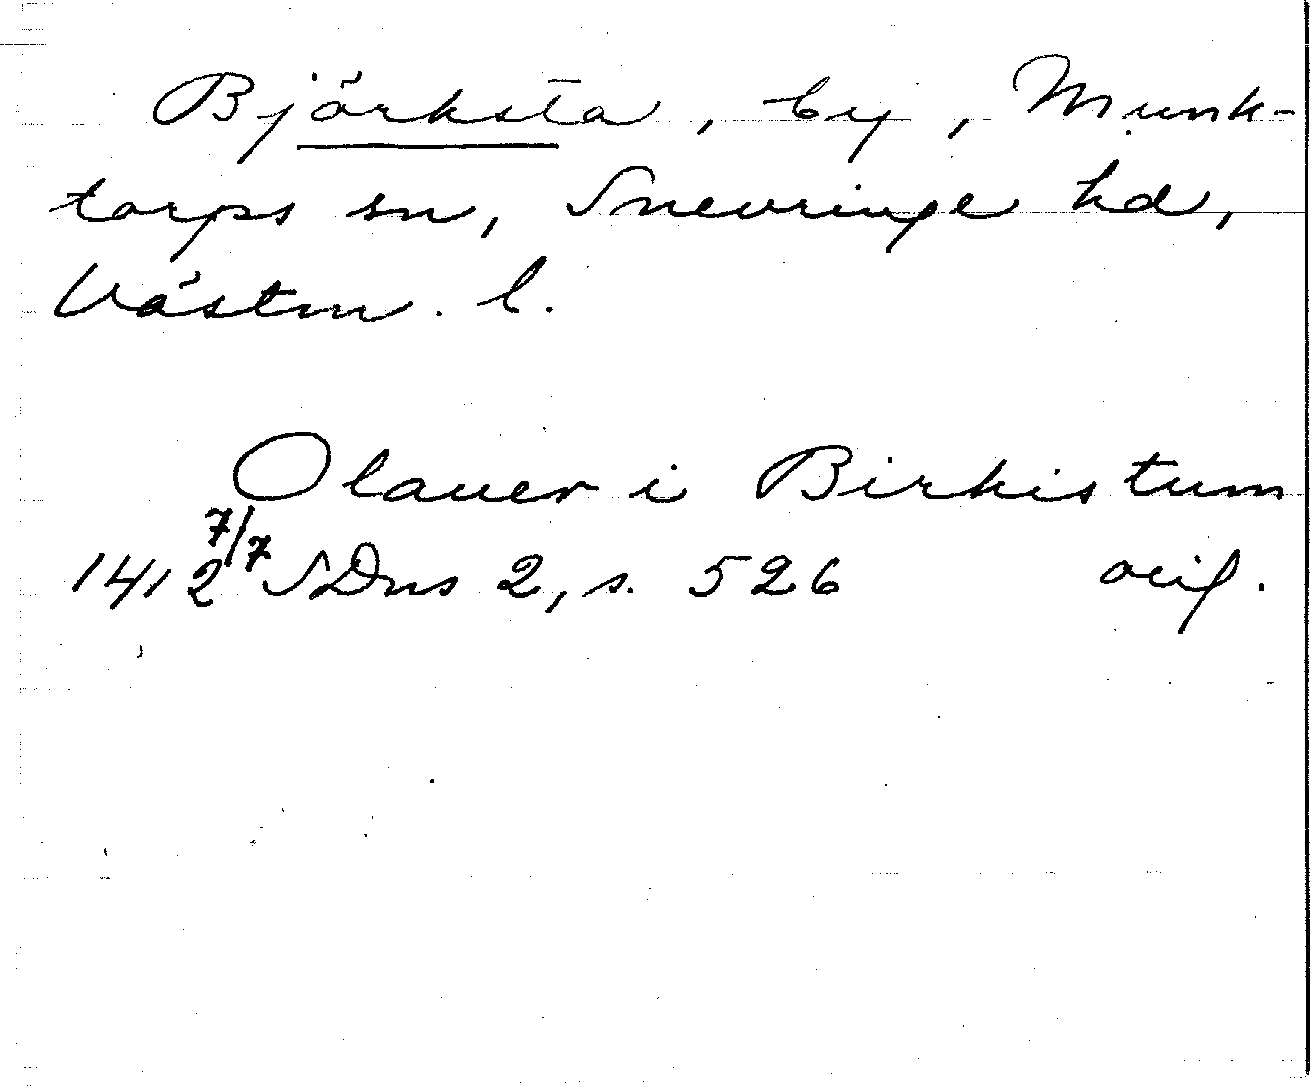 Björksta, by, Munk-
torps sn, Snevringe hd,
Västm. l.
Olauer i Birkistum
1412 7/7 SDns 2, s. 526 orig.